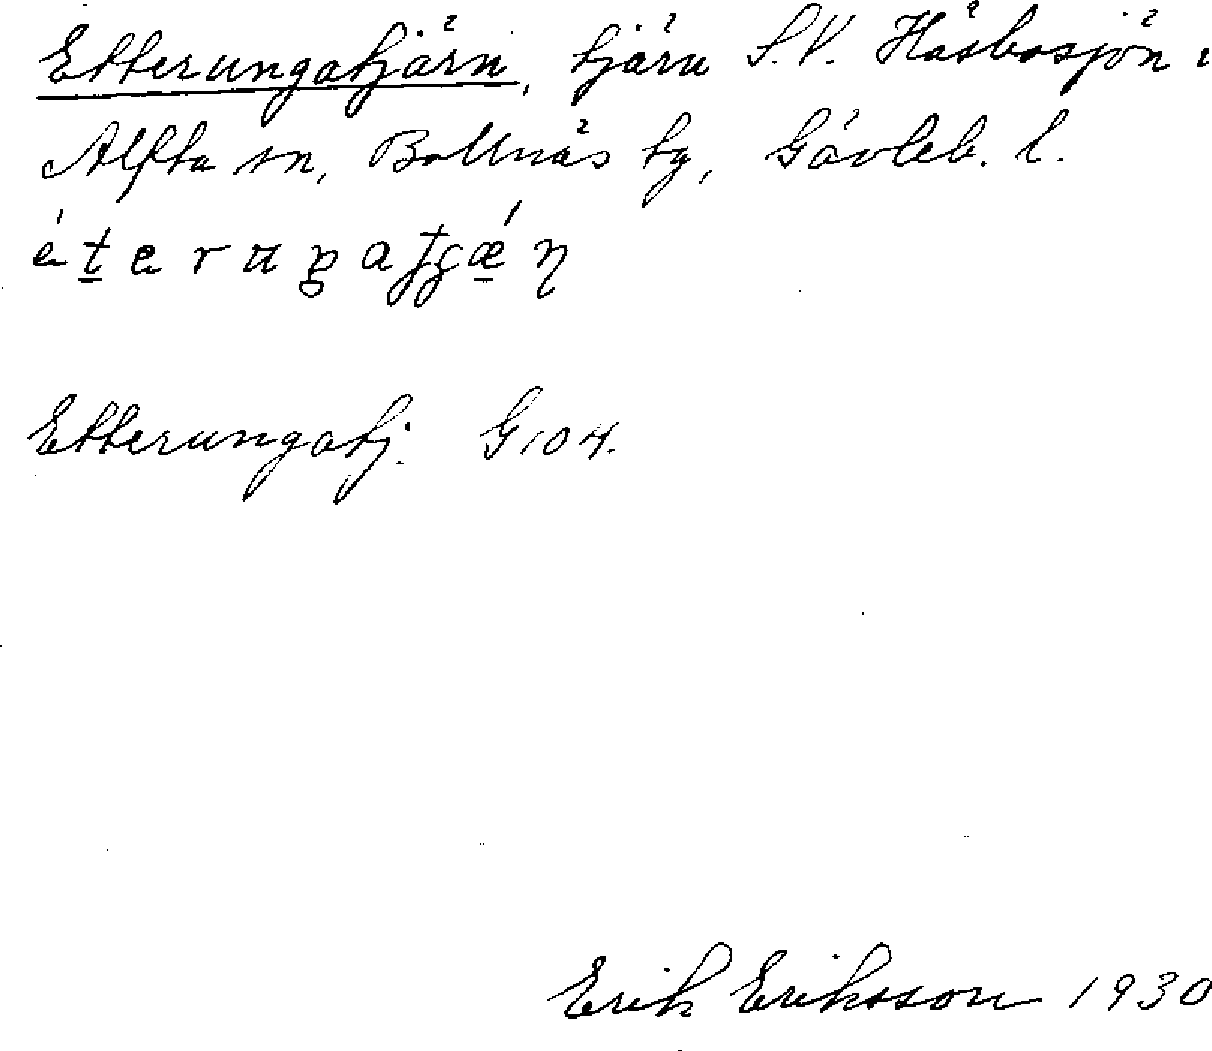 Etterungatjärn, tjärn S.V. Håsbosjön i
Alfta sn, Bollnäs tg, Gävleb. l.
Etterungatj. G104.
Erik Eriksson 1930